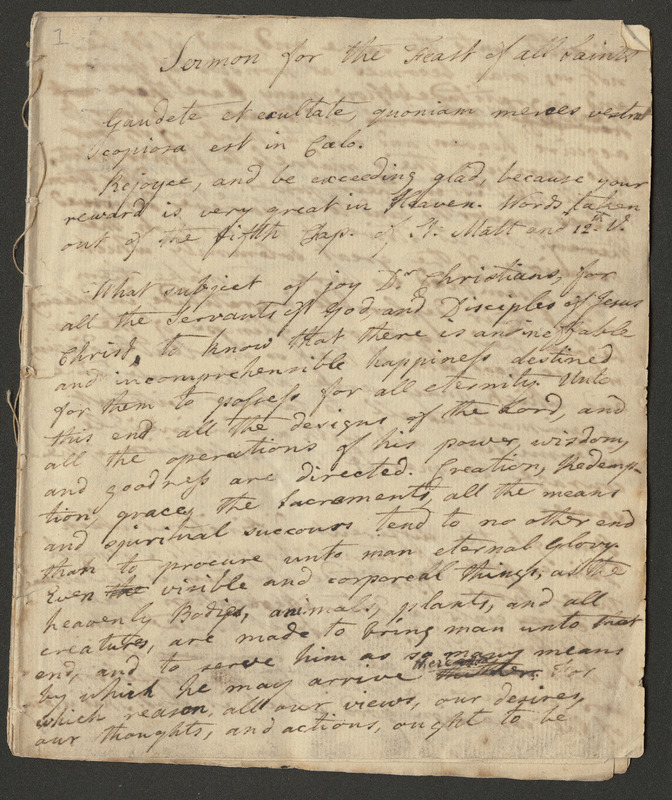 1
Sermon for the Feast of all Saints
Gaudete et exultate, quoniam merces vestra
copiosa est in Cælo.
Rejoyce, and be exceeding glad, because your
reward is very great in Heaven. Words taken
out of the fifth Chap. of St. Matt and 12th V.
What subject of joy Dr Christians, for
all the Servants of God, and Disciples of Jesus
Christ, to know that there is an ineffable
and incomprehensible happiness destined
for them to possess for all eternity. Unto
this end all the designs of the Lord, and
all the operations of his power, wisdom,
and goodness are directed. Creation, Redemp-
tion, grace, the Sacraments, all the means
and spiritual succours tend to no other end
than to procure unto man eternal Glory.
Even the visible and corporeal things, as the
heavenly Bodies, animals, plants, and all
creatures, are made to bring man unto that
end, and to serve him as so many means
by which he may arrive thither. For
which reason, all our views, our desires,
our thoughts, and actions, ought to be